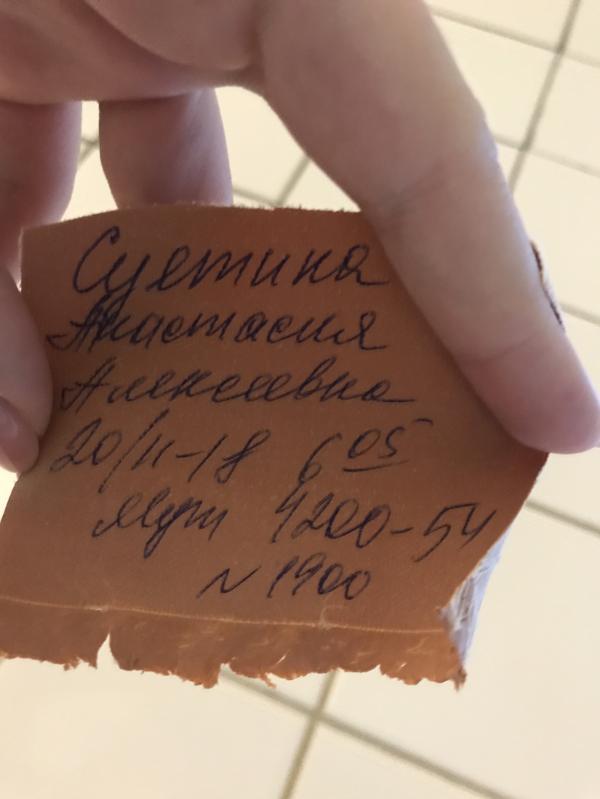 Суетина
Анастасия
Алексеевна
20/II-18 6 05
4200-54
N 1900